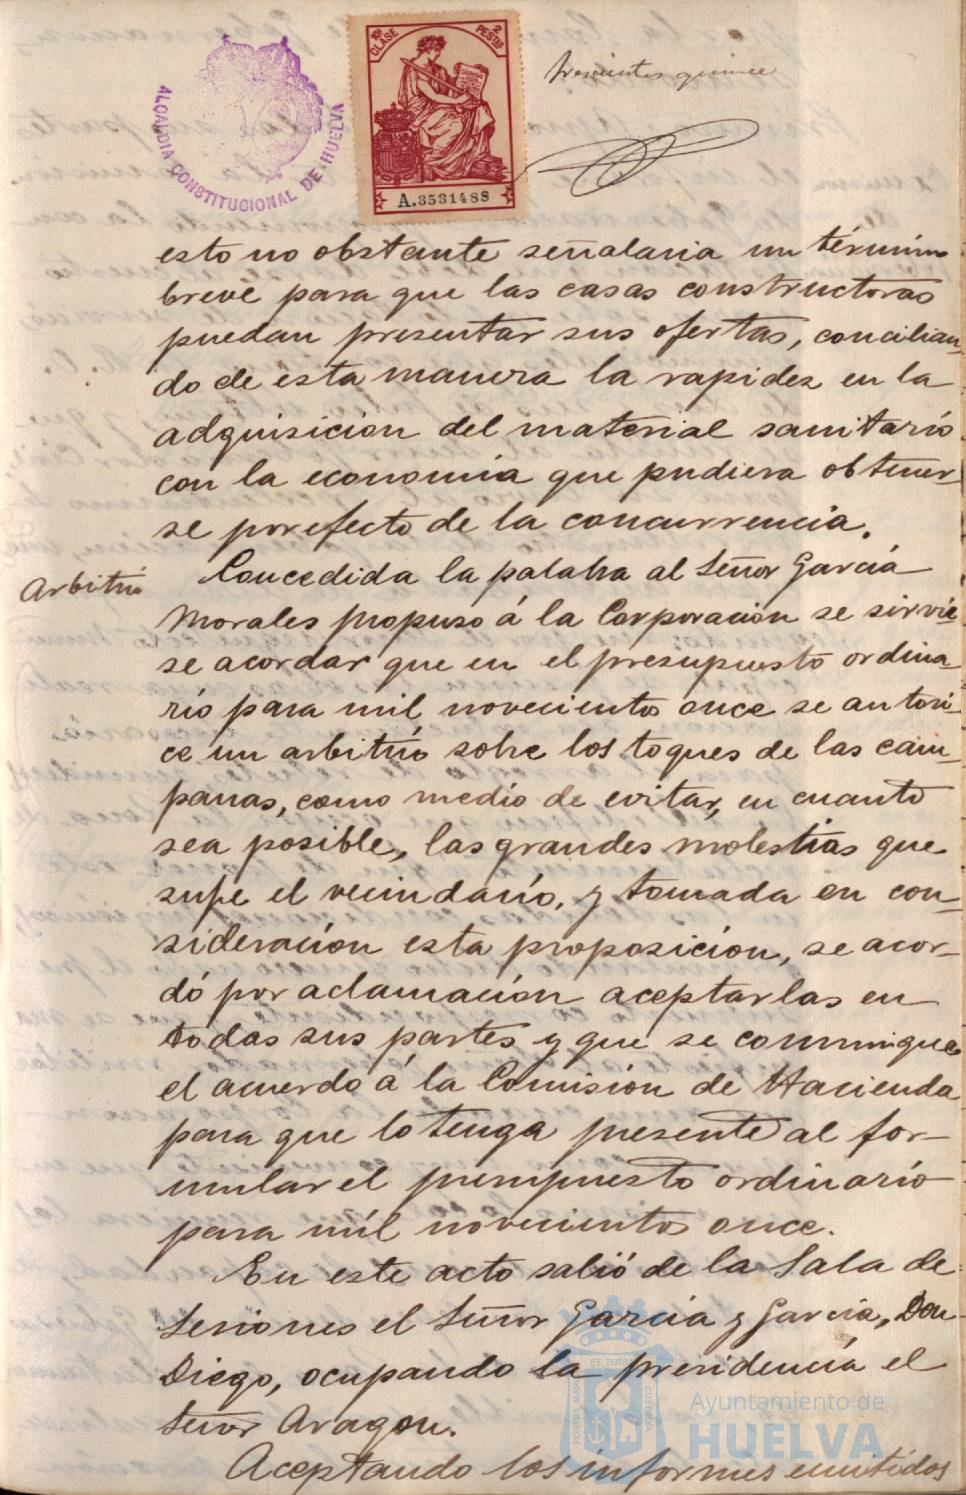 ALCALDIA CONSTITUCIONAL DE HUELVA
10ª CLASE
2 PESTAS
A.3531488
trescientos quince
esto no obstante señalaria un término
breve para que las casas constructoras
puedan presentar sus ofertas, concilian-
do de esta manera la rapidez en la
adquisicion del material sanitario
con la economia que pudiera obtener-
se por efecto de la concurrencia.
Arbitrio
Concedida la palabra al Señor García
Morales propuso á la Corporacion se sirvie-
se acordar que en el presupuesto ordina-
rio para mil novecientos once se autori-
ce un arbitrio sobre los toques de las cam-
panas, como medio de evitar, en cuanto
sea posible, las grandes molestias que
sufre el vecindario, y tomada en con-
sideracion esta proposicion, se acor-
dó por aclamacion aceptarlas en
todas sus partes y que se comunique
el acuerdo á la Comision de Hacienda
para que lo tenga presente al for-
mular el presupuesto ordinario
para mil novecientos once.
En este acto salió de la Sala de
Sesiones el Señor Garcia y Garcia, Don
Diego, ocupando la presidencia el
Señor Aragon.
Aceptando los informes emitidos
PORTUS MARIS ET TERRAE CUSTODIA
Ayuntamiento de
HUELVA